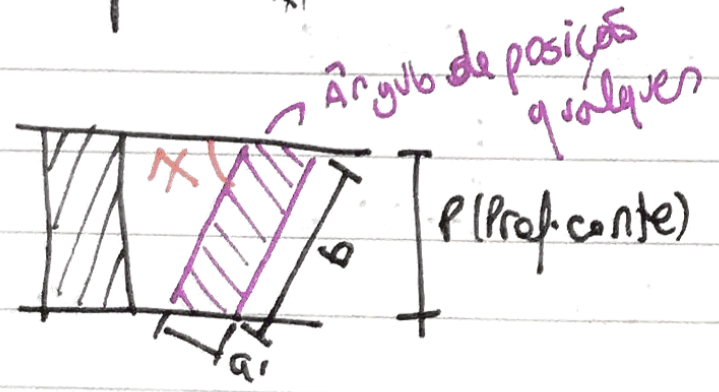 Ângulo de posição
qualquer
X
P (Prof. corte)
b
a₁